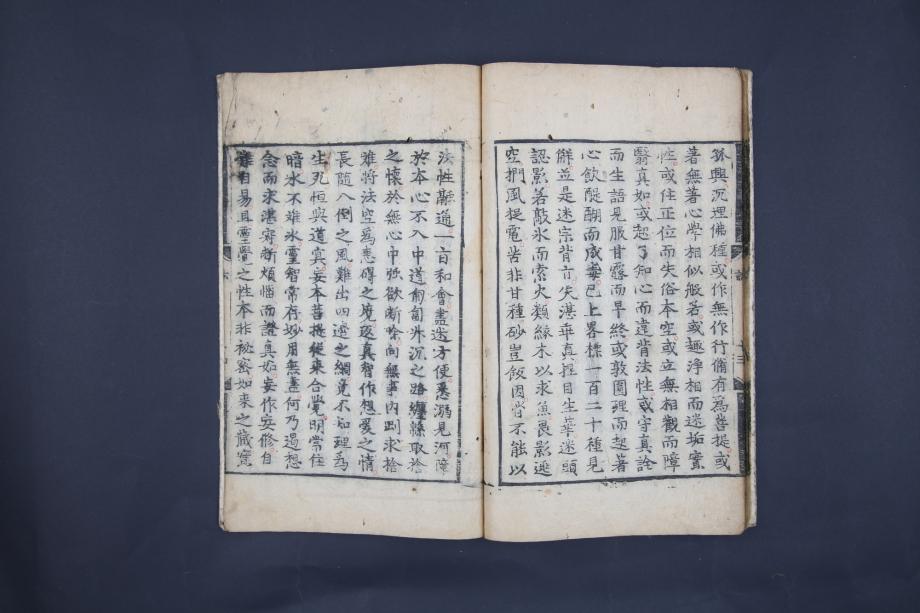 孤興沉埋佛種或作無作行備有爲菩提或
著無著心學相似般若或趣淨相而迷垢實
性或住正位而失俗本空或立無相觀而障
翳真如或起了知心而違背法性或守真詮
而生語見服甘露而早終或敦圓理而起著
心飲醍醐而成毒已上略標一百二十種見
解並是迷宗背方失湛乖真捏目生華迷頭
認影若敲氷而索火類緣木以求魚畏影逃
空捫風捉電苦非甘種砂豈飯因皆不能以
法性融通一百和會盡迷方便悉溺見河障
於本心不入中道匍匐升沉之路纏緜取捨
之懷於無心中強欲斷除向無事內剛求捨
離將法空爲恚礙之境返真智作想愛之情
長隨八倒之風難出四邊之網竟不知理爲
生死恒與道冥妄本菩提從來合覺明常住
暗水不離氷靈智常存妙用無盡何乃遏想
念而求湛寂斷煩惱而證真如妄作妄修自
難自易且靈覺之性本非祕密如來之藏實